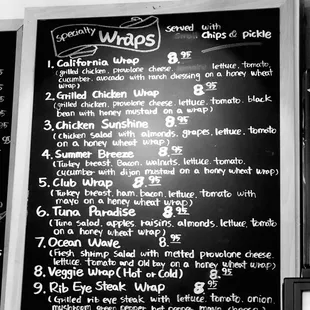 specialty Wraps served with
chips & pickle
1. California Wrap 8.95
(grilled chicken, provolone cheese lettuce, tomato,
cucumber, avocado with ranch dressing on a honey wheat
wrap)
2. Grilled Chicken Wrap 8.95
(grilled chicken, provolone cheese, lettuce, tomato, black
bean with honey mustard on a wrap)
3. Chicken Sunshine 8.95
(Chicken salad with almonds, grapes, lettuce, tomato
on a honey wheat wrap)
4. Summer Breeze 8.95
(Turkey breast, Bacon, walnuts, lettuce, tomato,
cucumber with dijon mustard on a honey wheat wrap)
5. Club Wrap 8.95
(Turkey breast, ham, bacon, lettuce, tomato with
mayo on a honey wheat wrap)
6. Tuna Paradise 8.95
(Tuna salad, apples, raisins, almonds, lettuce, tomato
on a honey wheat wrap)
7. Ocean Wave 8.95
(Fresh shrimp salad with melted provolone cheese,
lettuce, tomato and Old bay on a honey wheat wrap)
8. Veggie Wrap (Hot or Cold) 8.95
9. Rib Eye Steak Wrap 8.95
(Grilled rib eye steak with lettuce, tomato, onion,
mushroom, green pepper, hot pepper, mayo, cheese)